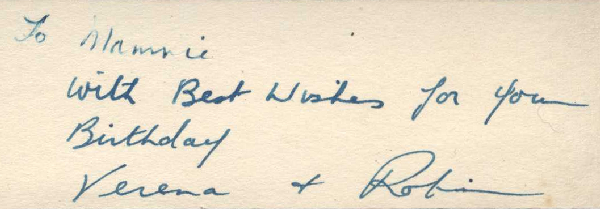 To Mammie
With Best Wishes for your
Birthday
Verena + Robin